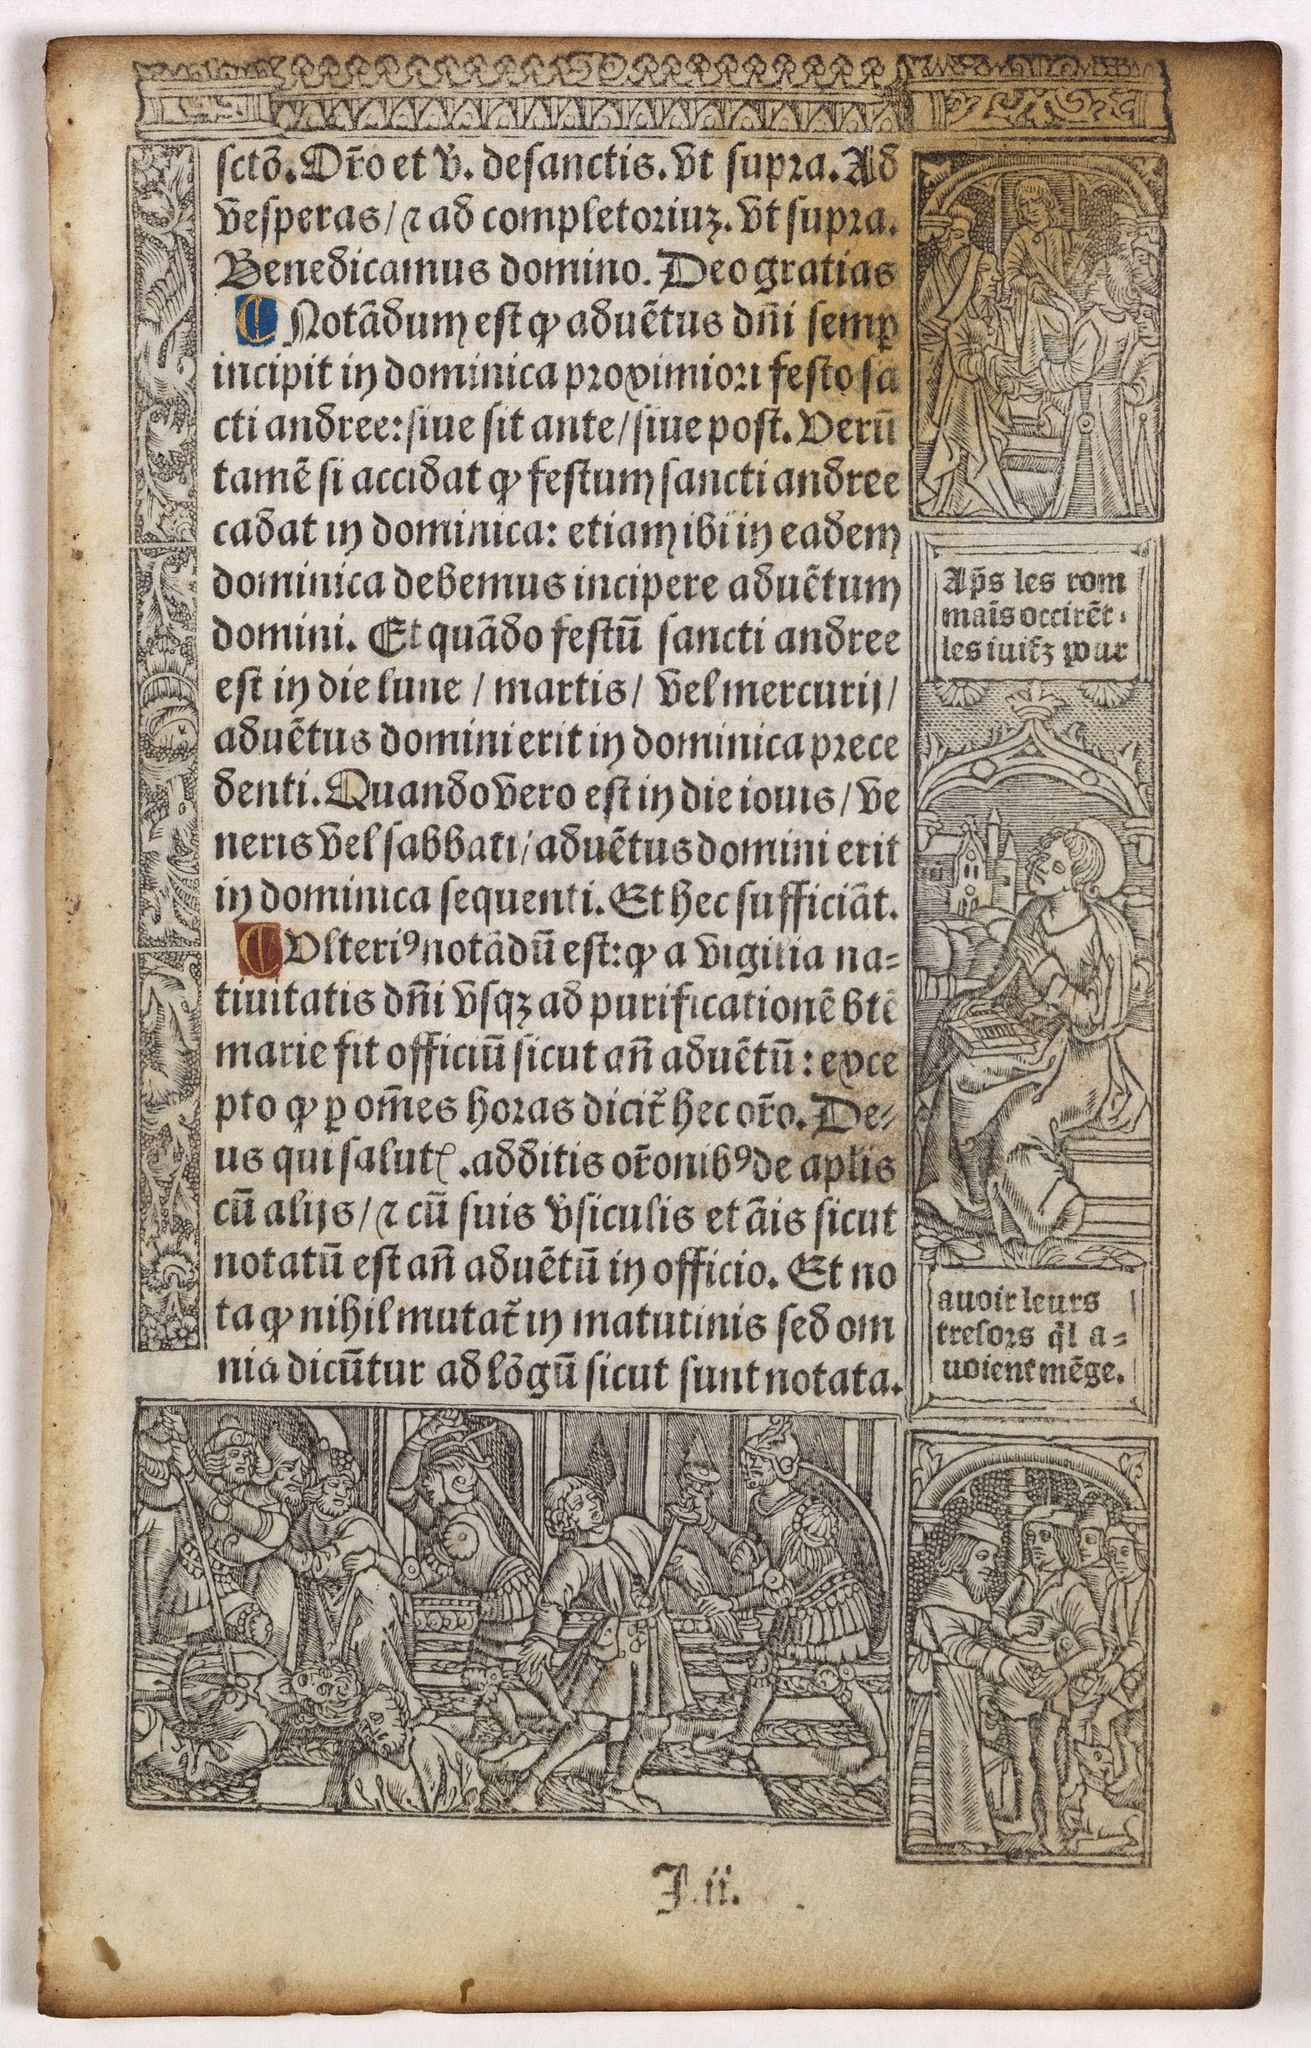 sctõ. Or̃o et v̄. de sanctis. vt supra. Ad
vesperas/ ⁊ ad completoriuꝫ. vt supra.
Benedicamus domino. Deo gratias
Notãdum est ꝙ aduẽtus dñi semꝑ
incipit in dominica proximiori festo sã
cti andree: siue sit ante/ siue post. Verũ
tamẽ si accidat ꝙ festum sancti andree
cadat in dominica: etiam ibi in eadem
dominica debemus incipere aduẽtum
domini. Et quãdo festũ sancti andree
est in die lune / martis/ vel mercurij/
aduẽtus domini erit in dominica prece
denti. Quando vero est in die iouis/ ve
neris vel sabbati/ aduẽtus domini erit
in dominica sequenti. Et hec sufficiãt.
Vlteriꝰ notãdũ est: ꝙ a vigilia na=
tiuitatis dñi vsqꝫ ad purificationẽ btẽ
marie fit officiũ sicut añ aduẽtũ: exce
pto ꝙ ꝑ om̃es horas dicit̃ hec or̃o. De=
us qui salutꝭ. additis or̃onibꝰ de aplis
cũ alijs/ ⁊ cũ suis v̄siculis et ãis sicut
notatũ est añ aduẽtũ in officio. Et no
ta ꝙ nihil mutat̃ in matutinis sed om
nia dicũtur ad lõgũ sicut sunt notata.
Ap̃s les rom
maĩs occirẽt
les iuifz pour
auoir leurs
tresors q̃l a=
uoient mẽge.
J.ii.